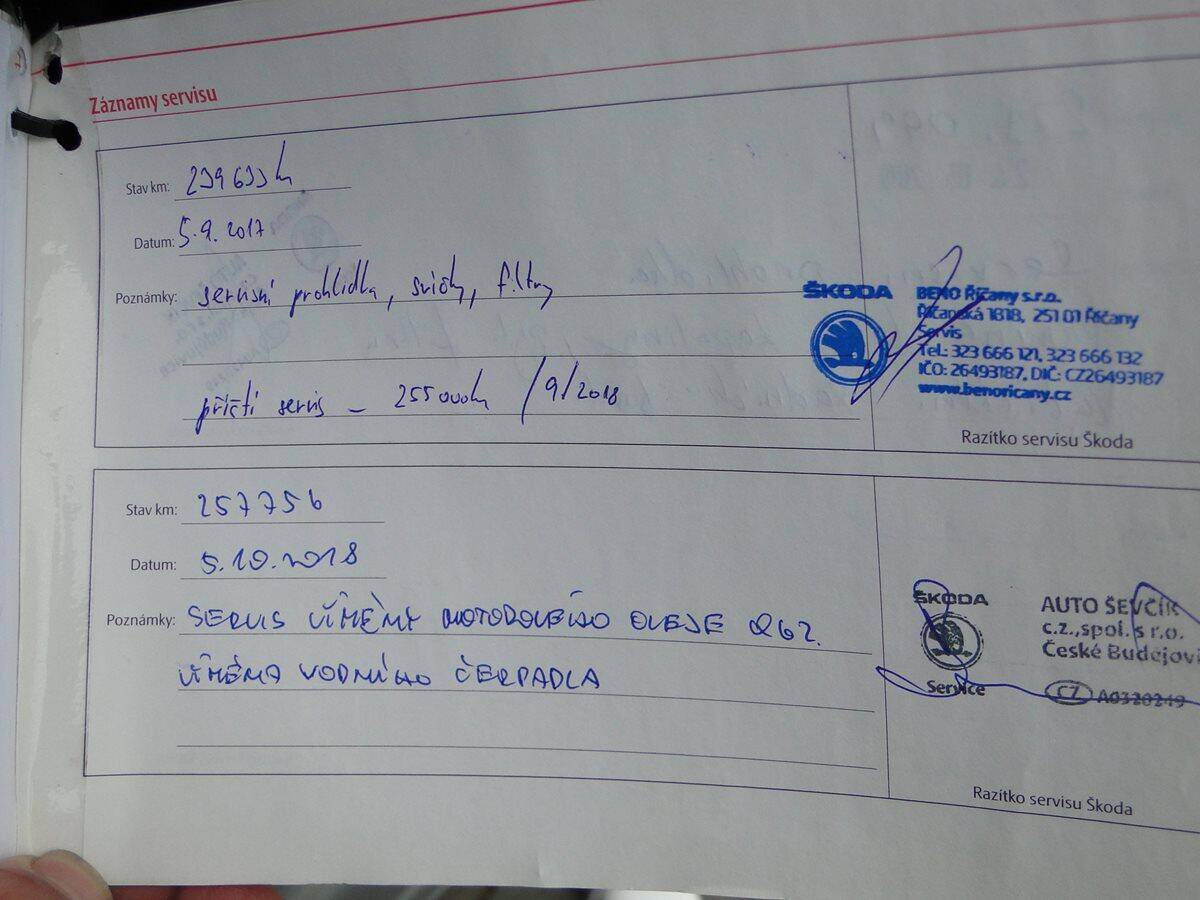 Záznamy servisu
Stav km: 239633 km
Datum: 5.9.2017
Poznámky: servisní prohlídka, svíčky, filtry
příští servis - 255000km /9/2018
ŠKODA
BENO Říčany s.r.o.
Říčanská 1818, 251 01 Říčany
Servis
Tel.: 323 666 121, 323 666 132
IČO: 26493187, DIČ: CZ26493187
www.benoricany.cz
Razítko servisu Škoda
Stav km: 257756
Datum: 5.10.2018
Poznámky: SERVIS VÝMĚNY MOTOROVÉHO OLEJE QG2.
VÝMĚNA VODNÍHO ČERPADLA
ŠKODA
Service
AUTO ŠEVČÍK
c.z.,spol. s r.o.
České Budějovi
CZ A0320249
Razítko servisu Škoda